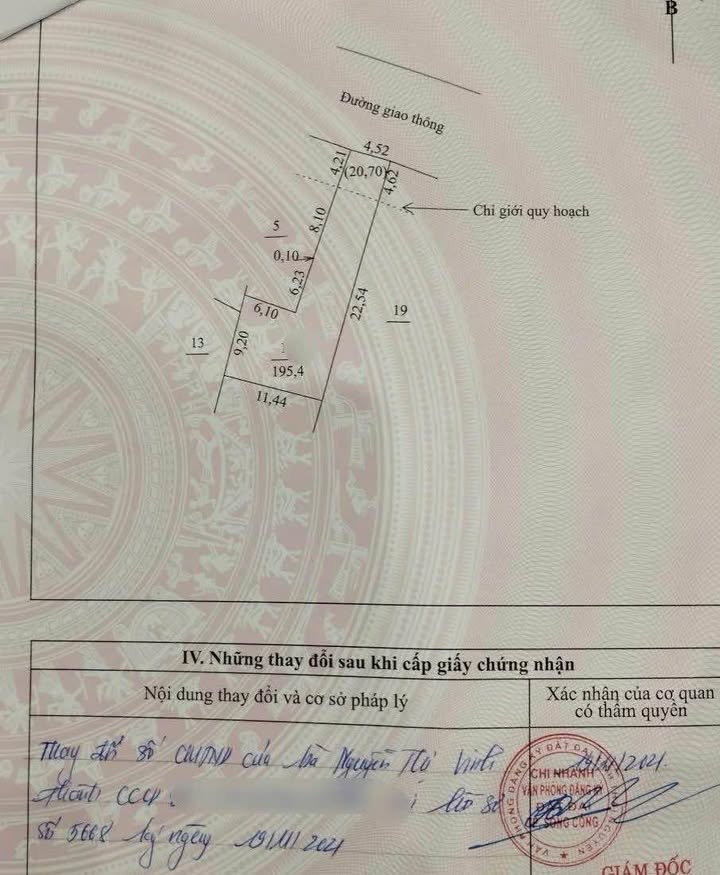 B
Đường giao thông
4,52
4,21
(20,70)
4,62
Chỉ giới quy hoạch
8,10
5
0,10
6,23
22,54
19
6,10
13
9,20
1
195,4
11,44
IV. Những thay đổi sau khi cấp giấy chứng nhận
Nội dung thay đổi và cơ sở pháp lý
Xác nhận của cơ quan
có thẩm quyền
Thay đổi số CMND của bà Nguyễn Thị Vinh
thành CCCD
số 5668 ký ngày 19/11/2021
19/11/2021
CHI NHÁNH
VĂN PHÒNG ĐĂNG KÝ
ĐẤT ĐAI
TP SÔNG CÔNG
GIÁM ĐỐC